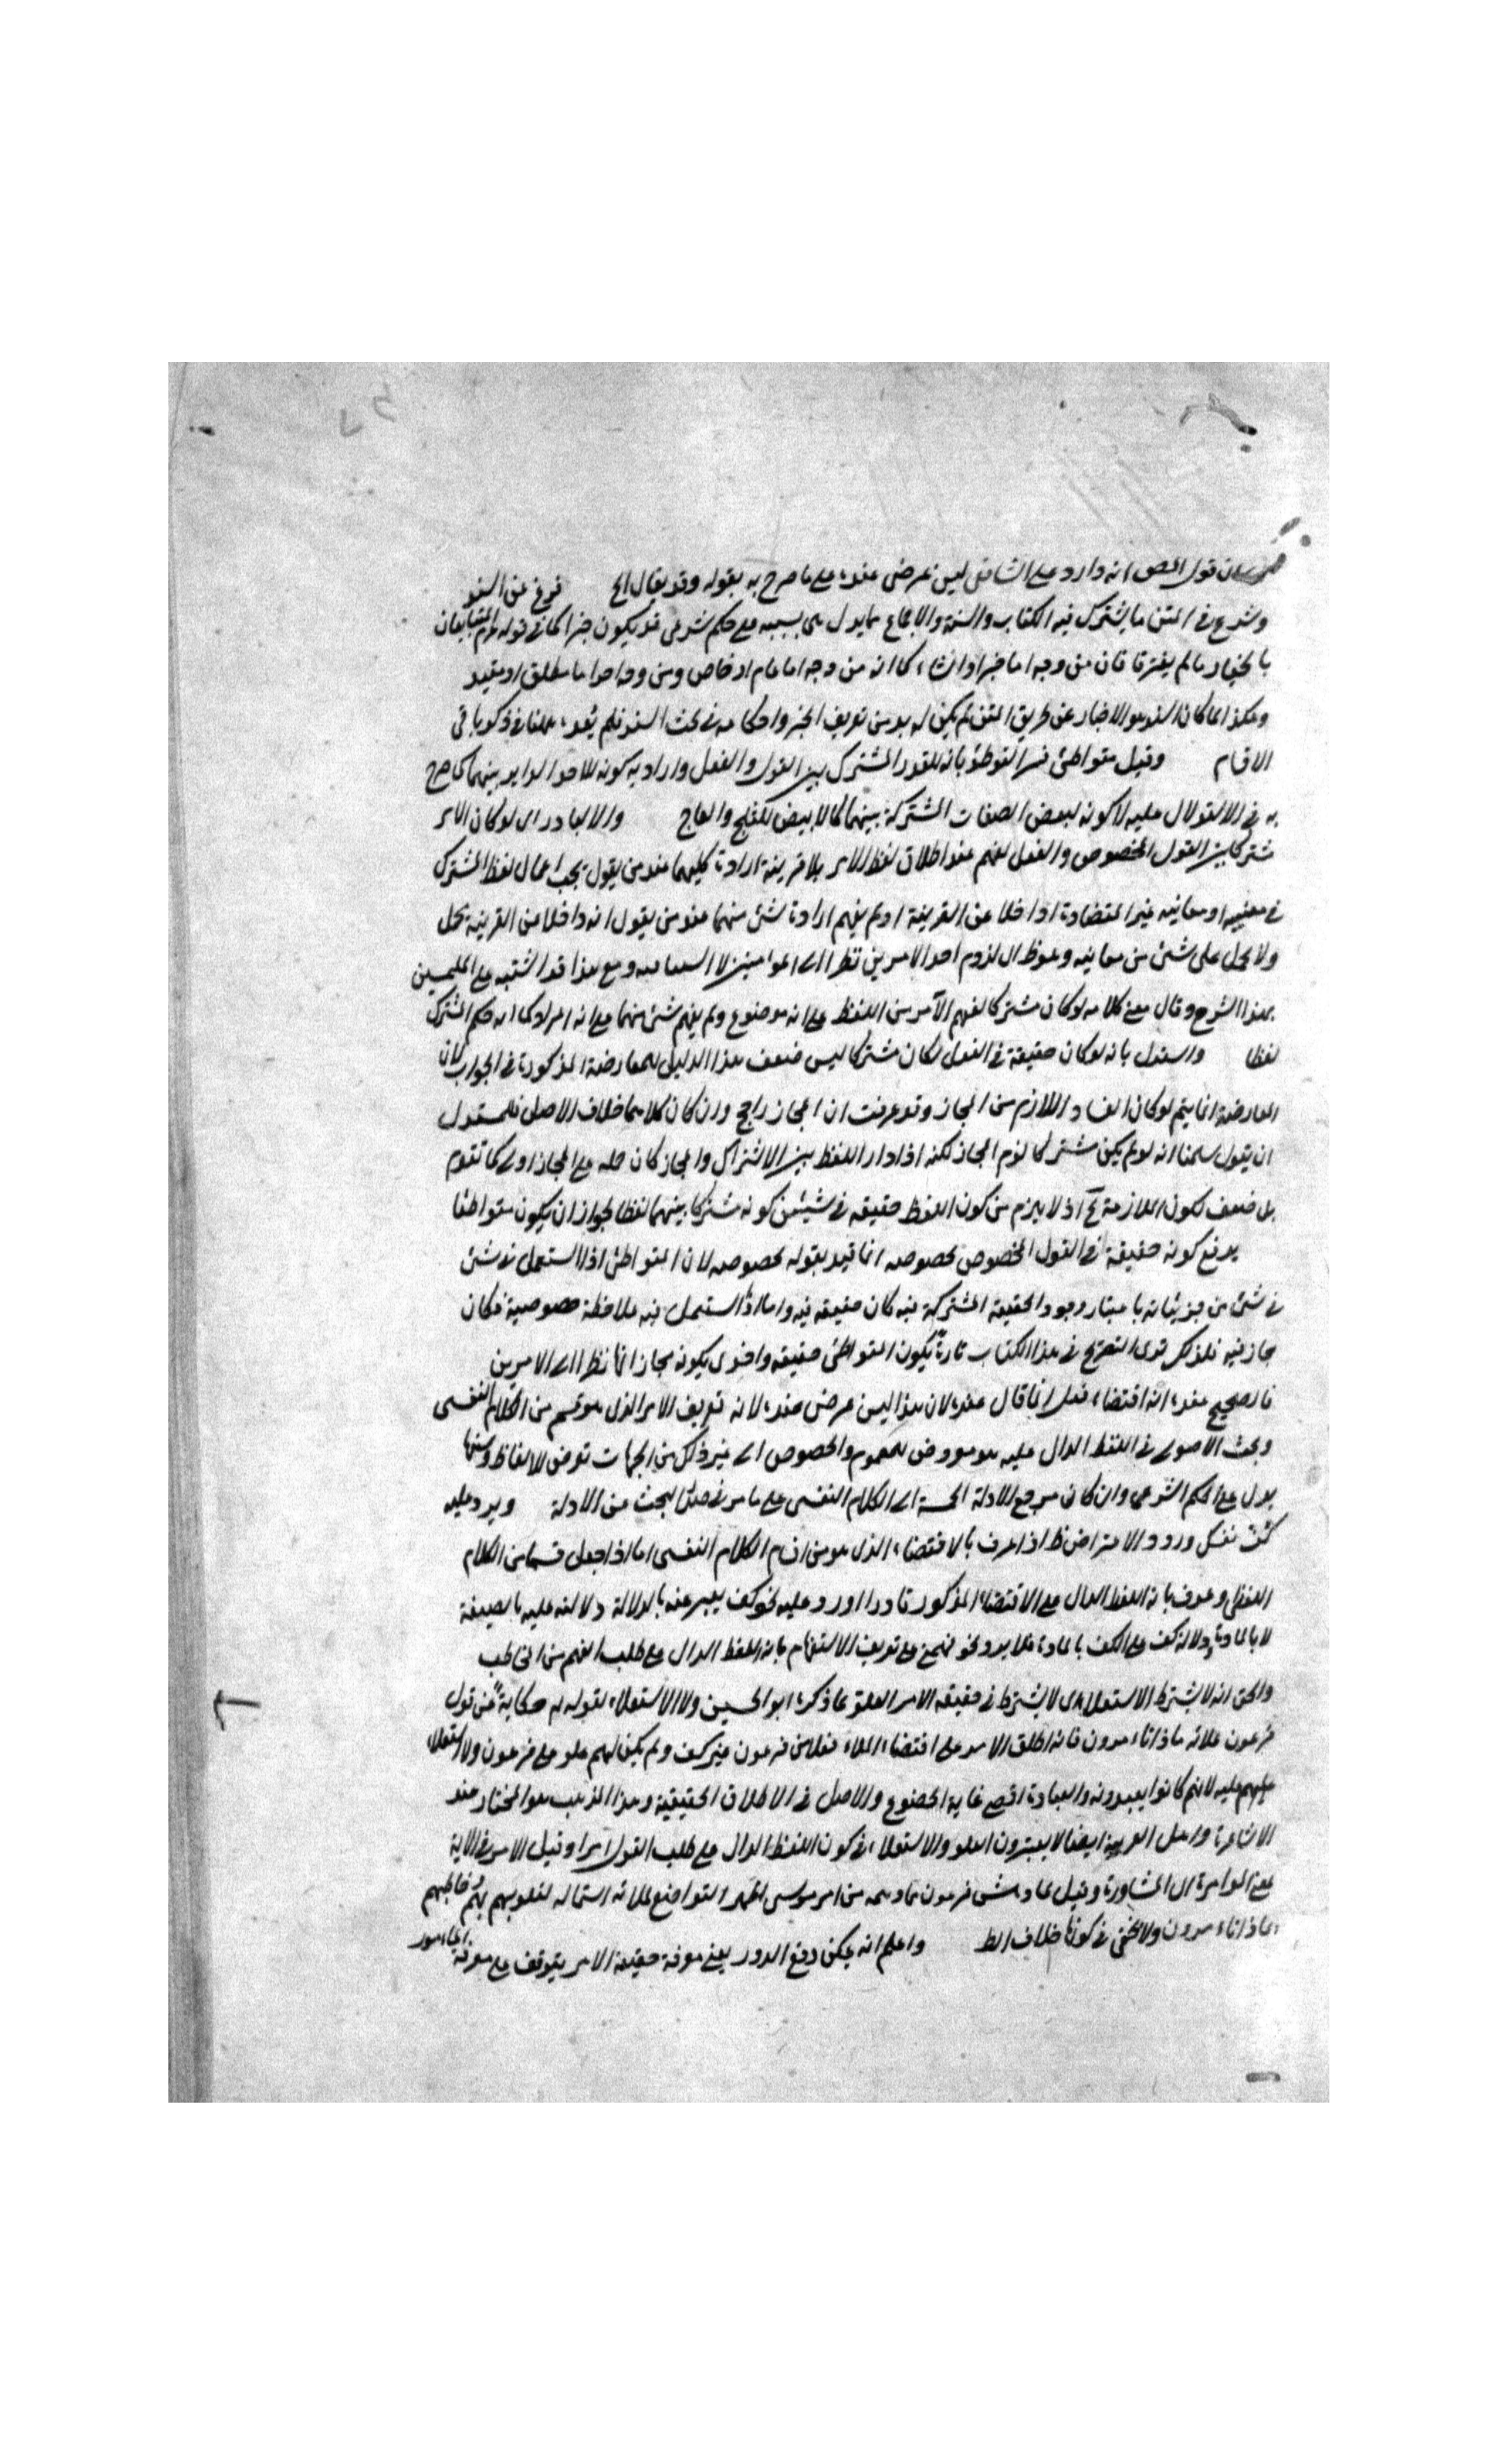 قول المص انه وارد على الشافعى ليس بمرضى عنده على ما صرح به بقوله وقد يقال الخ فرغ عن السند
وشرع فى المتن ما يشترك فيه الكتاب والسنة والاجماع مما يدل بسببه على حكم شرعى قد يكون خبرا كما فى قوله المتبايعان
بالخيار ما لم يفترقا فان من وجه اما خبر او انشاء كما انه من وجه اما عام او خاص ومن وجه اخر اما مطلق او مقيد
وهكذا لما كان السند هو الاخبار عن طريق المتن لم يكن له بد من تعريف الخبر واحكامه فى بحث السند فلم يعده ههنا فى ذكر باقى
الاقسام وقيل متواطئ فسر التواطؤ بانه للقدر المشترك بين القول والفعل واراد به كونه للاحد الداير بينهما كما صرح
به فى الاستدلال عليه لا كونه لبعض الصفات المشتركة بينهما كالابيض للثلج والعاج والا لتبادر اى لو كان الامر
مشتركا بين القول المخصوص والفعل لفهم عند اطلاق لفظ الامر بلا قرينة ارادة كليهما عند من يقول يجب اعمال لفظ المشترك
فى معنييه او معانيه غير المتضادة اذا خلا عن القرينة او لم يفهم ارادة شئ منهما عند من يقول انه اذا خلا عن القرينة مجمل
ولا يحمل على شئ من معانيه وهو ظ اى لزوم احد الامرين نظرا الى المذهبين لا ومع هذا قد اشتبه على
بهذا الشرح وقال معنى كلامه لو كان مشتركا لفهم الآمر من اللفظ على انه موضوع ولم يفهم شئ منهما على انه المراد كما انه حكم المشترك
لفظا واستدل بانه لو كان حقيقة فى الفعل لكان مشتركا ليس ضعف هذا الدليل للمعارضة المذكورة فى الجواب لان
المعارضة انما يتم لو كان الفساد اللازم من المجاز وقد عرفت ان المجاز راجح وان كان كلاهما خلاف الاصل فللمستدل
ان يقول سلمنا انه لو لم يكن مشتركا لزم المجاز لكنه اذا دار اللفظ بين الاشتراك والمجاز كان حمله على المجاز اولى كما تقدم
بل ضعف لكون الملازمة مم اذ لا يلزم من كون اللفظ حقيقة فى شيئين كونه مشتركا بينهما لفظا لجواز ان يكون متواطئا
يدفع كونه حقيقة فى القول المخصوص بخصوصه انما قيد بقوله بخصوصه لان المتواطئ اذا استعمل فى شئ
فى شئ من جزئياته باعتبار وجود الحقيقة المشتركة فيه كان حقيقة فيه واما اذا استعمل فيه بملاحظة خصوصية فكان
مجازا فيه فلذلك ترى التصريح فى هذا الكتاب تارة بكون المتواطئ حقيقة واخرى بكونه مجازا انما نظرا الى الامرين
فالصحيح عنده انه اقتضاء فعل انما قال عنده لان هذا ليس بمرضى عنده لانه تعريف الامر الذى هو قسم من الكلام النفسى
وبحث الاصولى فى اللفظ الدال عليه هو معروض للعموم والخصوص الى غير ذلك من الجهات توضع للالفاظ ومنها
يدل على الحكم الشرعى وان كان مرجع الادلة الخمسة الى الكلام النفسى على ما مر فى البحث عن الادلة ويرد عليه
كف نفسك ورود الاعتراض ظ اذا عرف بالاقتضاء الذى هو من اقسام الكلام النفسى اما اذا جعل قسما من الكلام
اللفظى وعرف بانه اللفظ الدال على الاقتضاء المذكور اورد عليه نحو كف يعبر عنه بالدلالة دلالته عليه بالصيغة
لا بالمادة ودلالة كف على الكف بالمادة فلا يرد نحو على تعريف الاستفهام بانه اللفظ الدال على طلب الفهم من المخاطب
والحق انه لا يشترط الاستعلاء اى لا يشترط فى حقيقة الامر العلو لما ذكره ابو الحسين ولا الاستعلاء لقوله حكاية عن قول
فرعون ملائه ماذا تأمرون فانه اطلق الامر على اقتضاء الملاء فعلا من فرعون غير كف ولم يكن لهم علو على فرعون ولا استعلاء
عليهم عليه لانهم كانوا يعبدونه والعبادة اقصى غاية الخضوع والاصل فى الاطلاق الحقيقة وهذا المذهب هو المختار عند
الاشاعرة واهل العربية ايضا لا يعتبرون العلو والاستعلاء فى كون اللفظ الدال على طلب القول امرا وقيل الامر فى الآية
بمعنى المؤامرة اى المشاورة وقيل لما دهش فرعون من امر موسى اظهر التواضع لملائه استمالة لقلوبهم فخاطبهم
بماذا تأمرون ولا يخفى فى كونه خلاف الظ واعلم انه يمكن دفع الدور يعنى معرفة حقيقة الامر يتوقف على معرفة المأمور